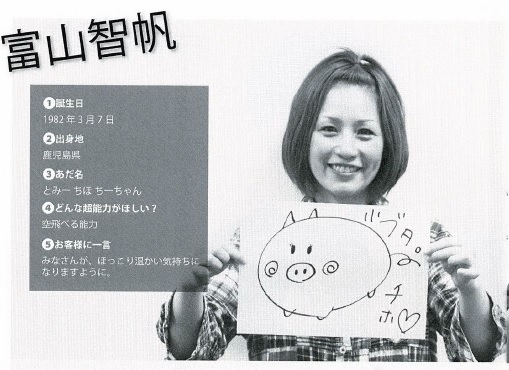 富山智帆
❶誕生日
1982年3月7日
❷出身地
鹿児島県
❸あだ名
とみー ちほ ちーちゃん
❹どんな超能力がほしい?
空飛べる能力
❺お客様に一言
みなさんが、ほっこり温かい気持ちに
なりますように。
ブタ。
チホ♡